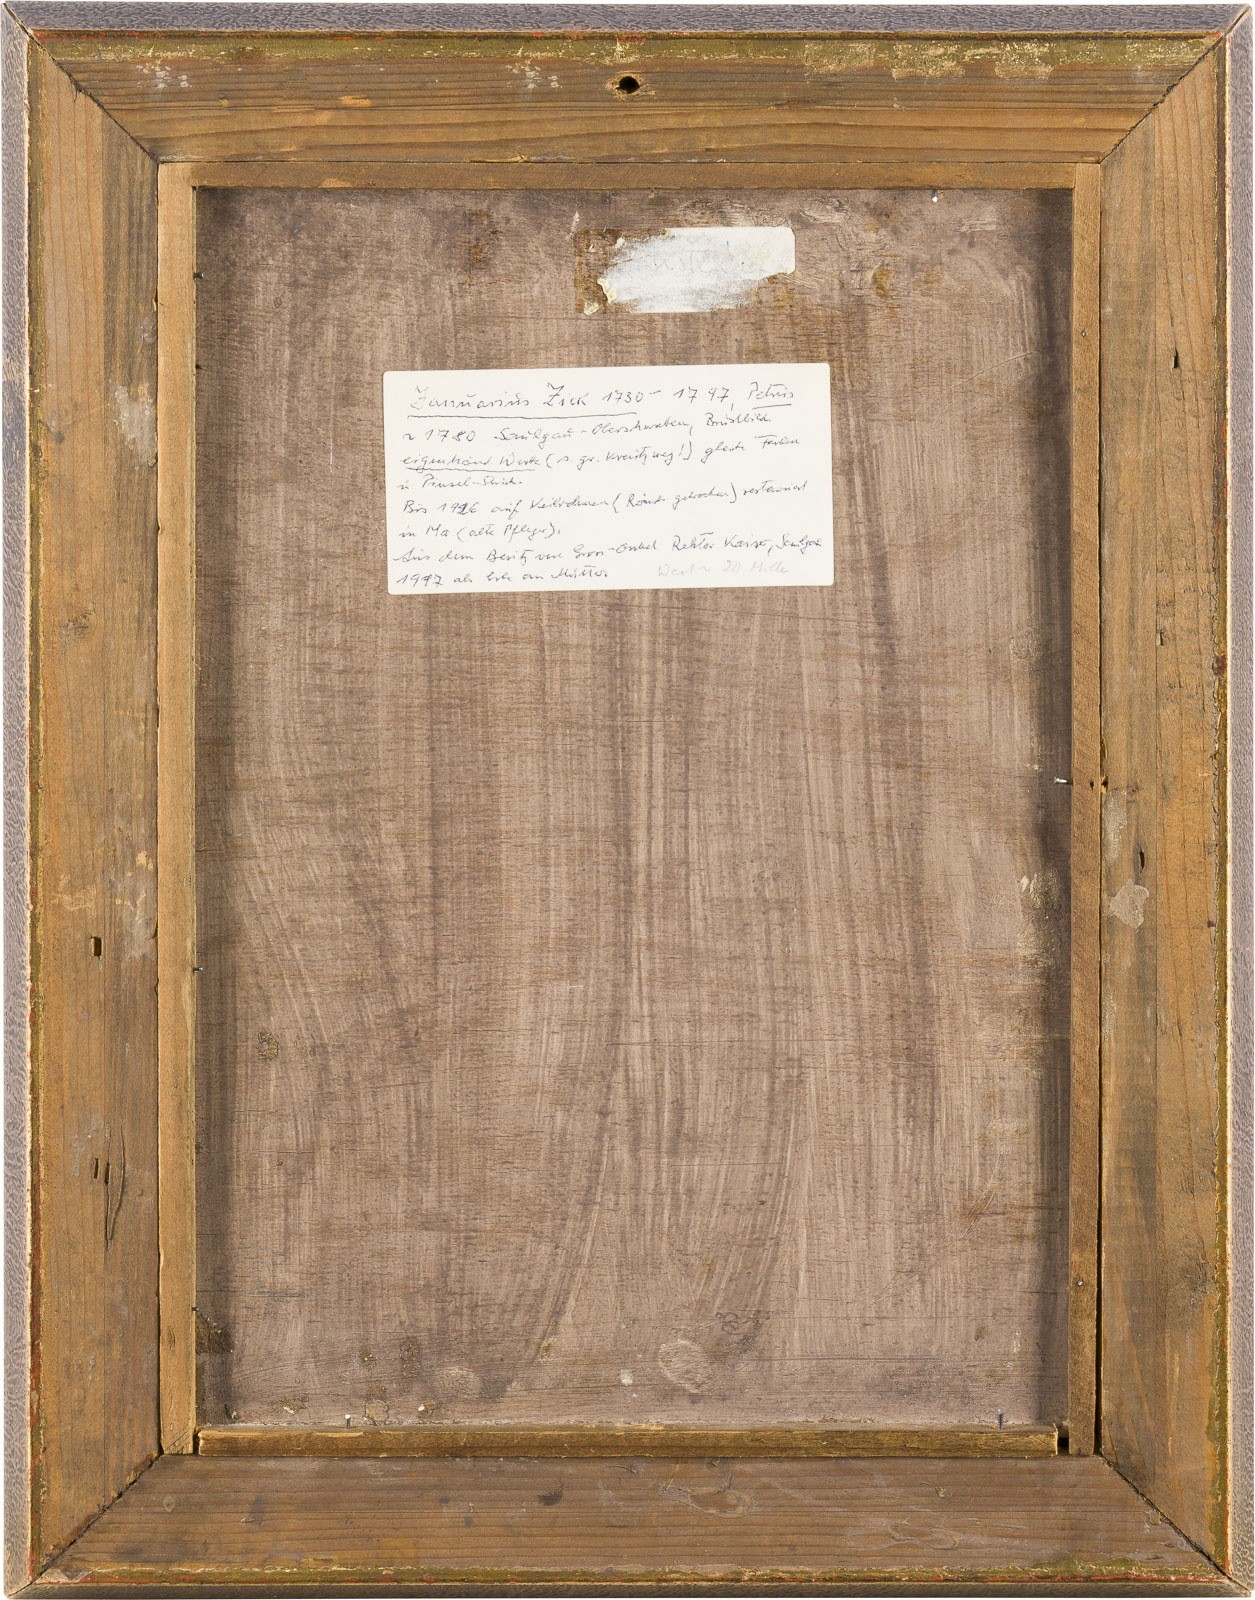 Januarius Zick 1730 - 1797, Petrus
~ 1780 Saulgau - Oberschwaben, Brustbild
eigenhänd. Werk (s. gr. Kreuzweg!) gleiche Farben
in Pinsel-Strich.
Bis 1996 auf Keilrahmen (Ränder gebrochen) restauriert
in Ma (alte Pflege).
Aus dem Besitz von Gross-Onkel Rektor Kaiser, Saulgau
1947 als Erbe an Mutter Wert ~ 20 Mille